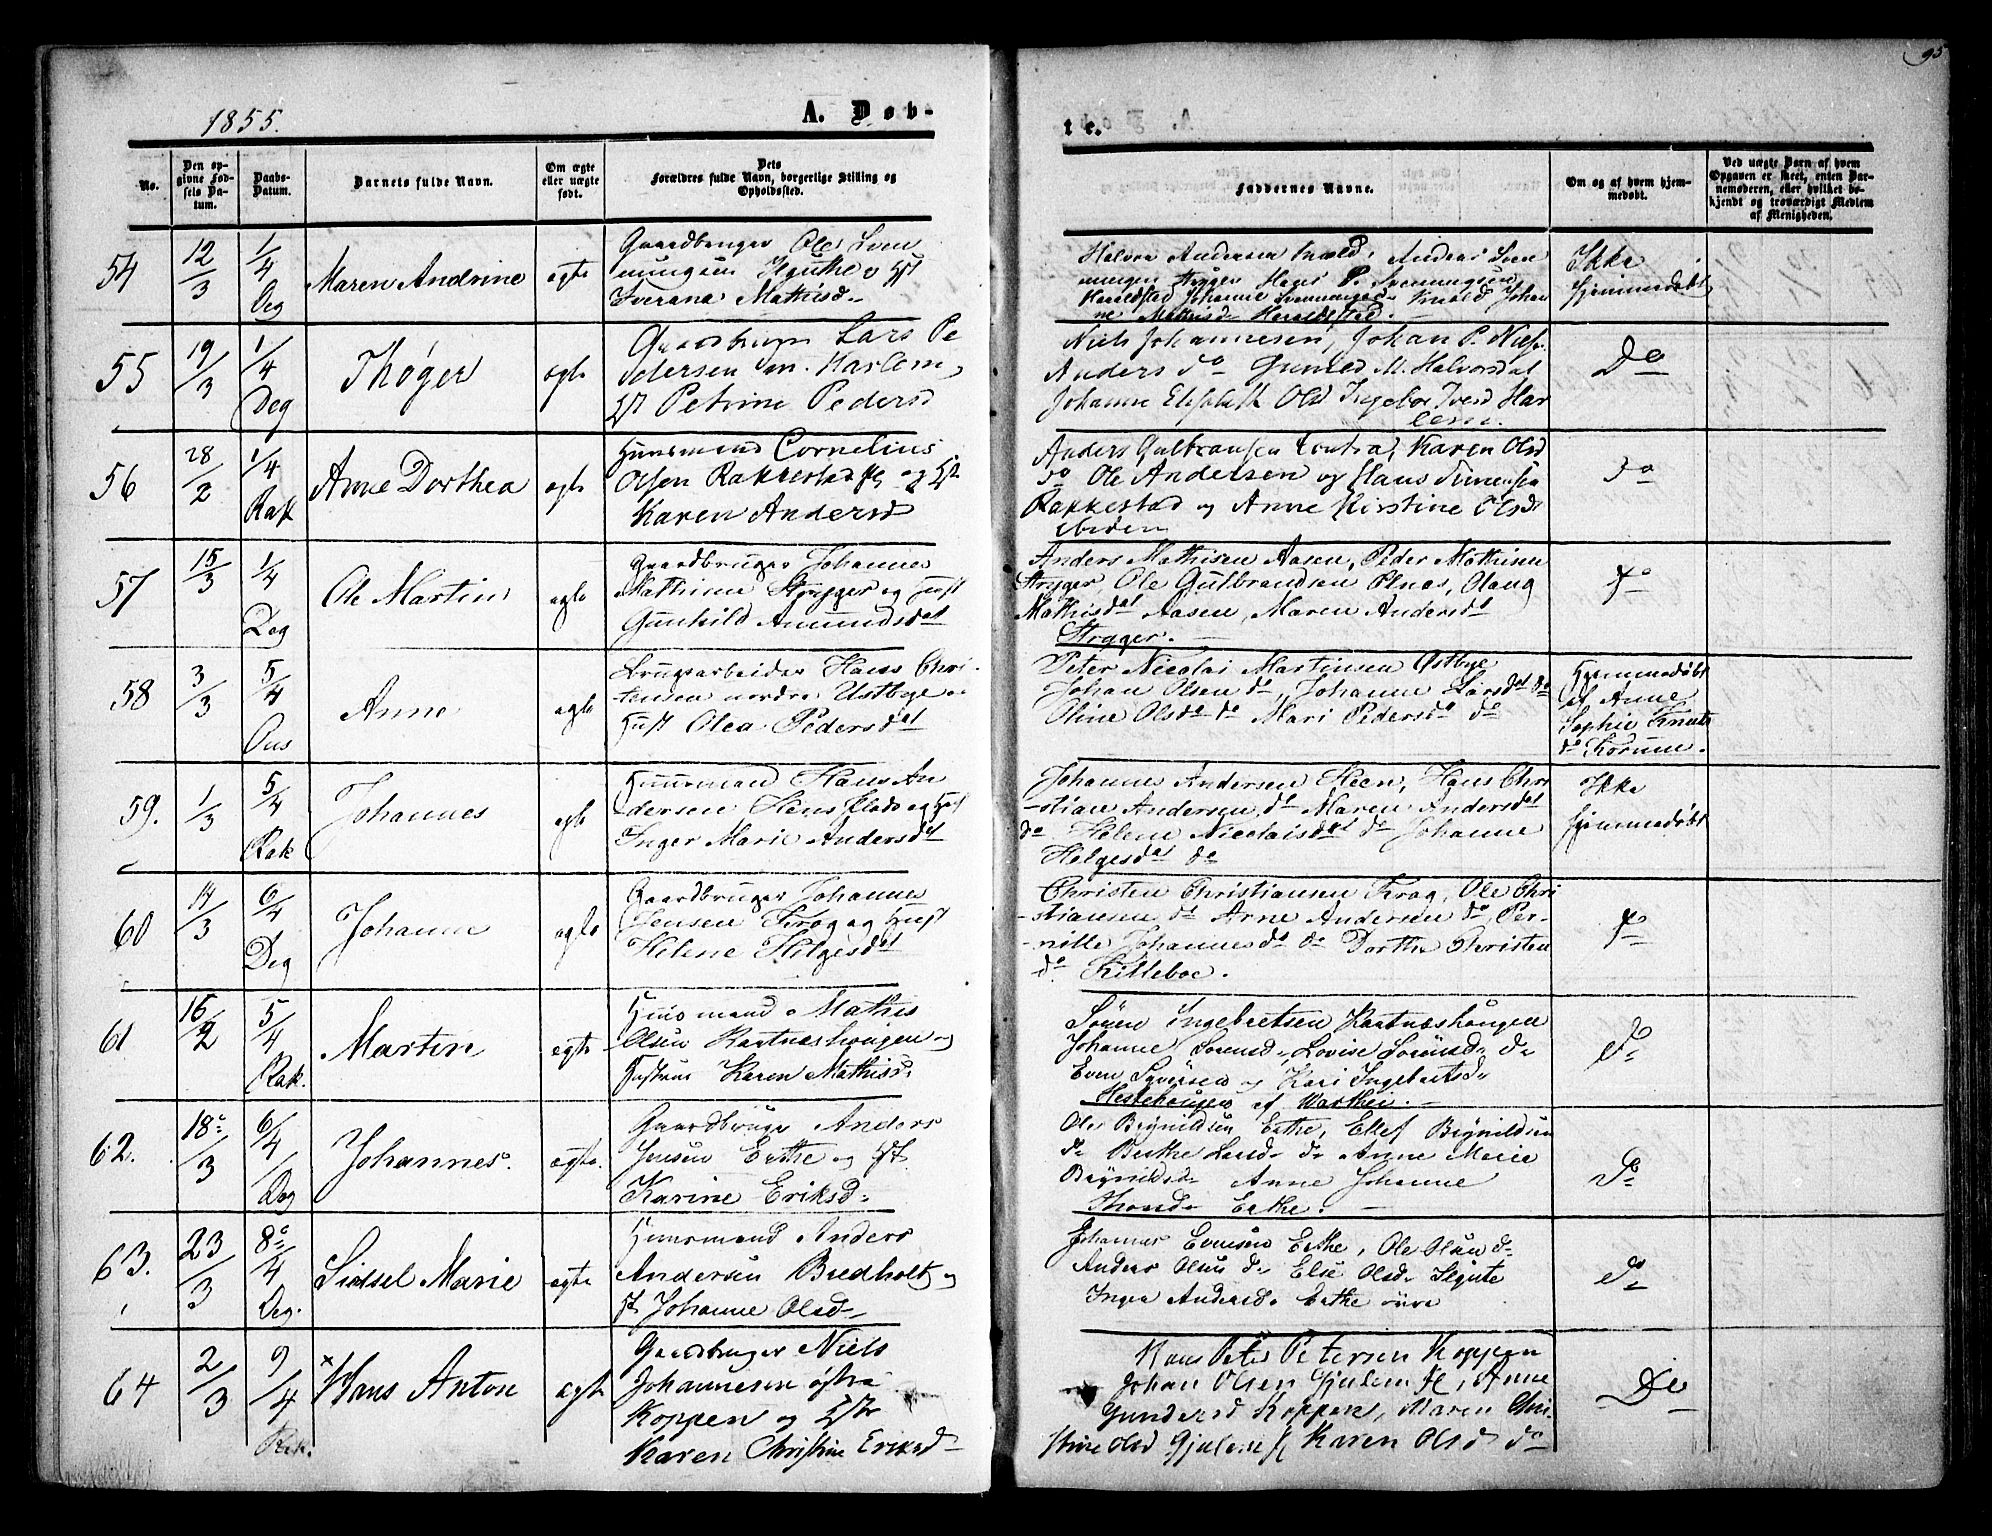 95
1855.
A. Døb-
te.
No.
Den op-
givne Fød-
sels Da-
tum.
Daabs-
Datum.
Barnets fulde Navn.
Om ægte
eller uægte
født.
Dets
Forældres fulde Navn, borgerlige Stilling og
Opholdssted.
Faddernes Navne.
Om og af hvem hjem-
medøbt.
Ved uægte Barn af hvem
Opgaven er skeet, enten Bar-
nemoderen, eller hvilket be-
kjendt og troværdigt Medlem
af Menigheden.
54
12/3
1/4
Deg
Maren Andrine
ægte
Gaardbruger Ole Sven
mungsen og Hst
Iverana Mathisd
Halvor Andersen Anders Sven
mungsen Stryger Hans P. Svenungsen
Haraldstad Johanne Johan
ne Mathisd Haraldstad.
Ikke
hjemmedøbt
55
19/3
1/4
Deg
Thøger
ægte
Gaardbruger Lars Pe
dersen Harlem
Hst Petrine Pedersd
Niels Johannesen, Johan P. Niels.
Anders do Gunild M. Halvorsdat
Johanne Elisabeth Olsd Ingebor Iversd Har
lem.
Do
56
28/2
1/4
Rak
Anne Dorthea
ægte
Huusmand Cornelius
Olsen Rakkestad og Hst
Karen Andersd
Anders Gulbransen Karen Olsd
do Ole Andersen og Hans
Rakkestad og Anne Kirstine Olsd
ibiden
Do
57
15/3
1/4
Deg
Ole Martin
ægte
Gaardbruger Johannes
Mathisen Stryger og Hust
Gunhild Amundsdat
Anders Mathisen Aasen, Peder Mathisen
Stryger, Ole Gulbrandsen Olaug
Mathisdat Aasen, Maren Andersdat
Stryger.
Do
58
3/3
5/4
Ons
Anne
ægte
Brugsarbeider Hans Chri
stensen nordre Ustbye
Hust Olea Pedersdat
Peter Nicolai Martinsen Østbye
Johan Olsen do, Johanne Larsdat do
Oline Olsd do Mari Pedersd do
Hjemmedøbt
af Anne
Sophie Knuts
do
59.
1/3
5/4
Rak
Johannes
ægte
Huusmand Hans An
dersen og Hust
Inger Marie Andersdat
Johannes Andersen Heen, Hans Chri
stian Andersen do Maren Andersdat
do Helene Nicolaisdat do Johanne
Helgesdat do
Ikke
hjemmedøbt
60
14/3
6/4
Deg
Johanne
ægte
Gaardbruger Johannes
Jensen Krog og Hust
Helene Helgesdat
Christen Christiansen Krog, Ole Chri
stiansen do Arne Andersen do, Per-
nille Johannesd do Dorthe Christen
do Killeboe.
Do
61
16/2
5/4
Rak.
Martin
ægte
Huusmand Mathis
Olsen og
Hustru Karen Mathisd
Søren Ingebretsen
Johanne Sorensd, Lovise Sorensd do
Even Syversen og Kari Ingebretsd
af
Do
62.
18/3
6/4
Deg
Johannes.
ægte.
Gaardbruger Anders
Jensen Erthe og Hst
Karine Eriksd
Ole Brynildsen Erthe, Ellef Brynildsen
do Berthe Larsd do Anne Marie
Brynildsd Anne Johanne
Erthe.
Do
63.
23/3
8/4
Deg.
Sidsel Marie
ægte
Huusmand Anders
Andersen Bredholt og
Johanne Olsd
Johannes Evensen Erthe, Ole Olsen do
Anders Olsen do Else Olsd
Inger Andersd Erthe øvre
Do
64
2/3
9/4
Rak.
Hans Anton
ægte
Gaardbruger Niels
Johannesen østre
Koppen og Hst
Karen Christine Eriksd
Hans Peter Petersen Koppen
Johan Olsen Anne
Gundersd Koppen, Maren Chri-
stine Olsd Karen Olsd do
Do